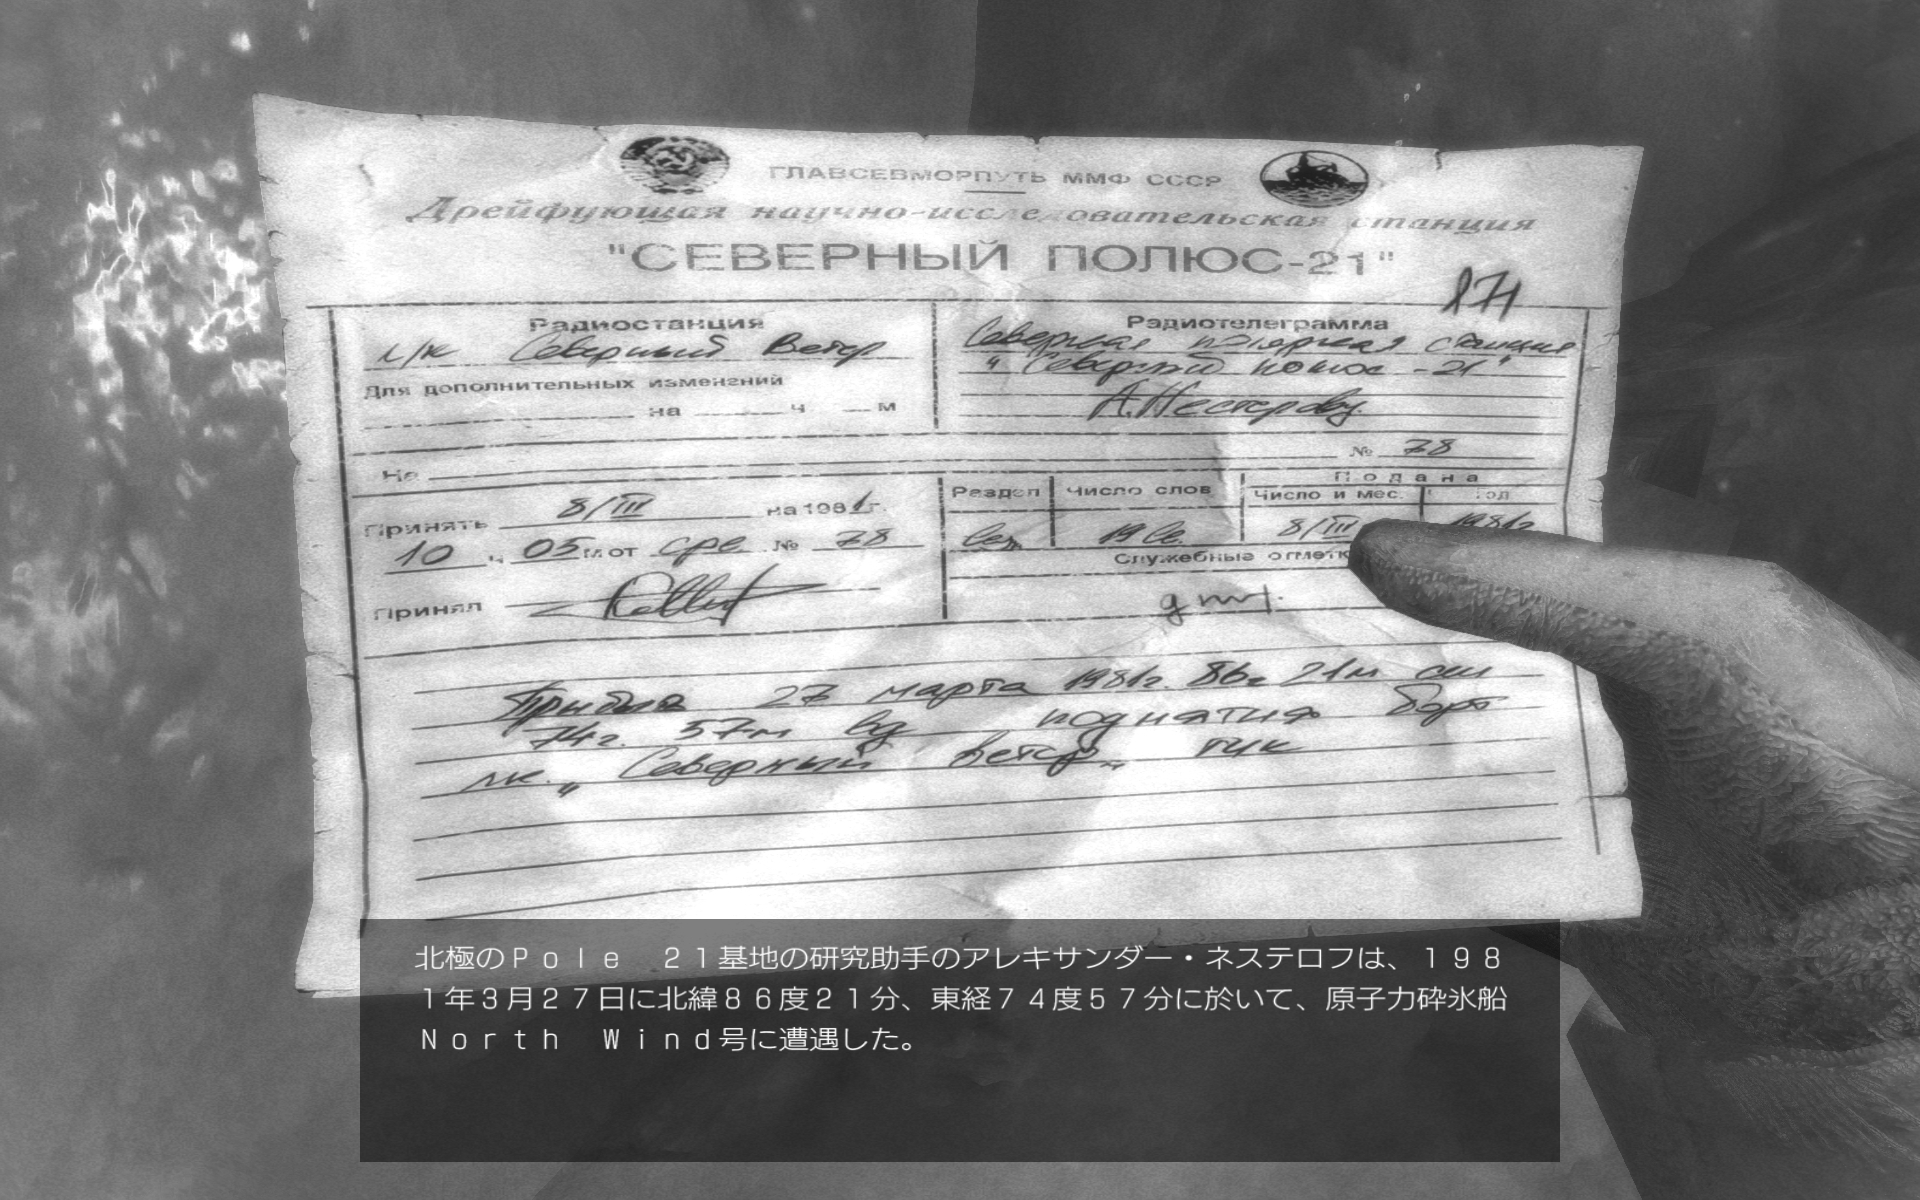 ГЛАВСЕВМОРПУТЬ ММФ СССР
Дрейфующая научно-исследовательская станция
"СЕВЕРНЫЙ ПОЛЮС-21"
Радиостанция
л/к Северный Ветер
Для дополнительных изменений
на ч м
Радиотелеграмма
Северная полярная станция
"Северный полюс -21"
А. Нестерову
№ 78
На
Принять 8/III на 1981г.
10 ч 05 м от сре № 78
Принял
Раздел Число слов
Подана
Число и мес. год
19 8/III 1981г
Служебные отметк
Прибыл 27 марта 1981г. 86г 21м сш
74г. 57м вд поднятия борт
лк. "Северный Ветер"
北極のＰｏｌｅ　２１基地の研究助手のアレキサンダー・ネステロフは、１９８
１年３月２７日に北緯８６度２１分、東経７４度５７分に於いて、原子力砕氷船
Ｎｏｒｔｈ　Ｗｉｎｄ号に遭遇した。